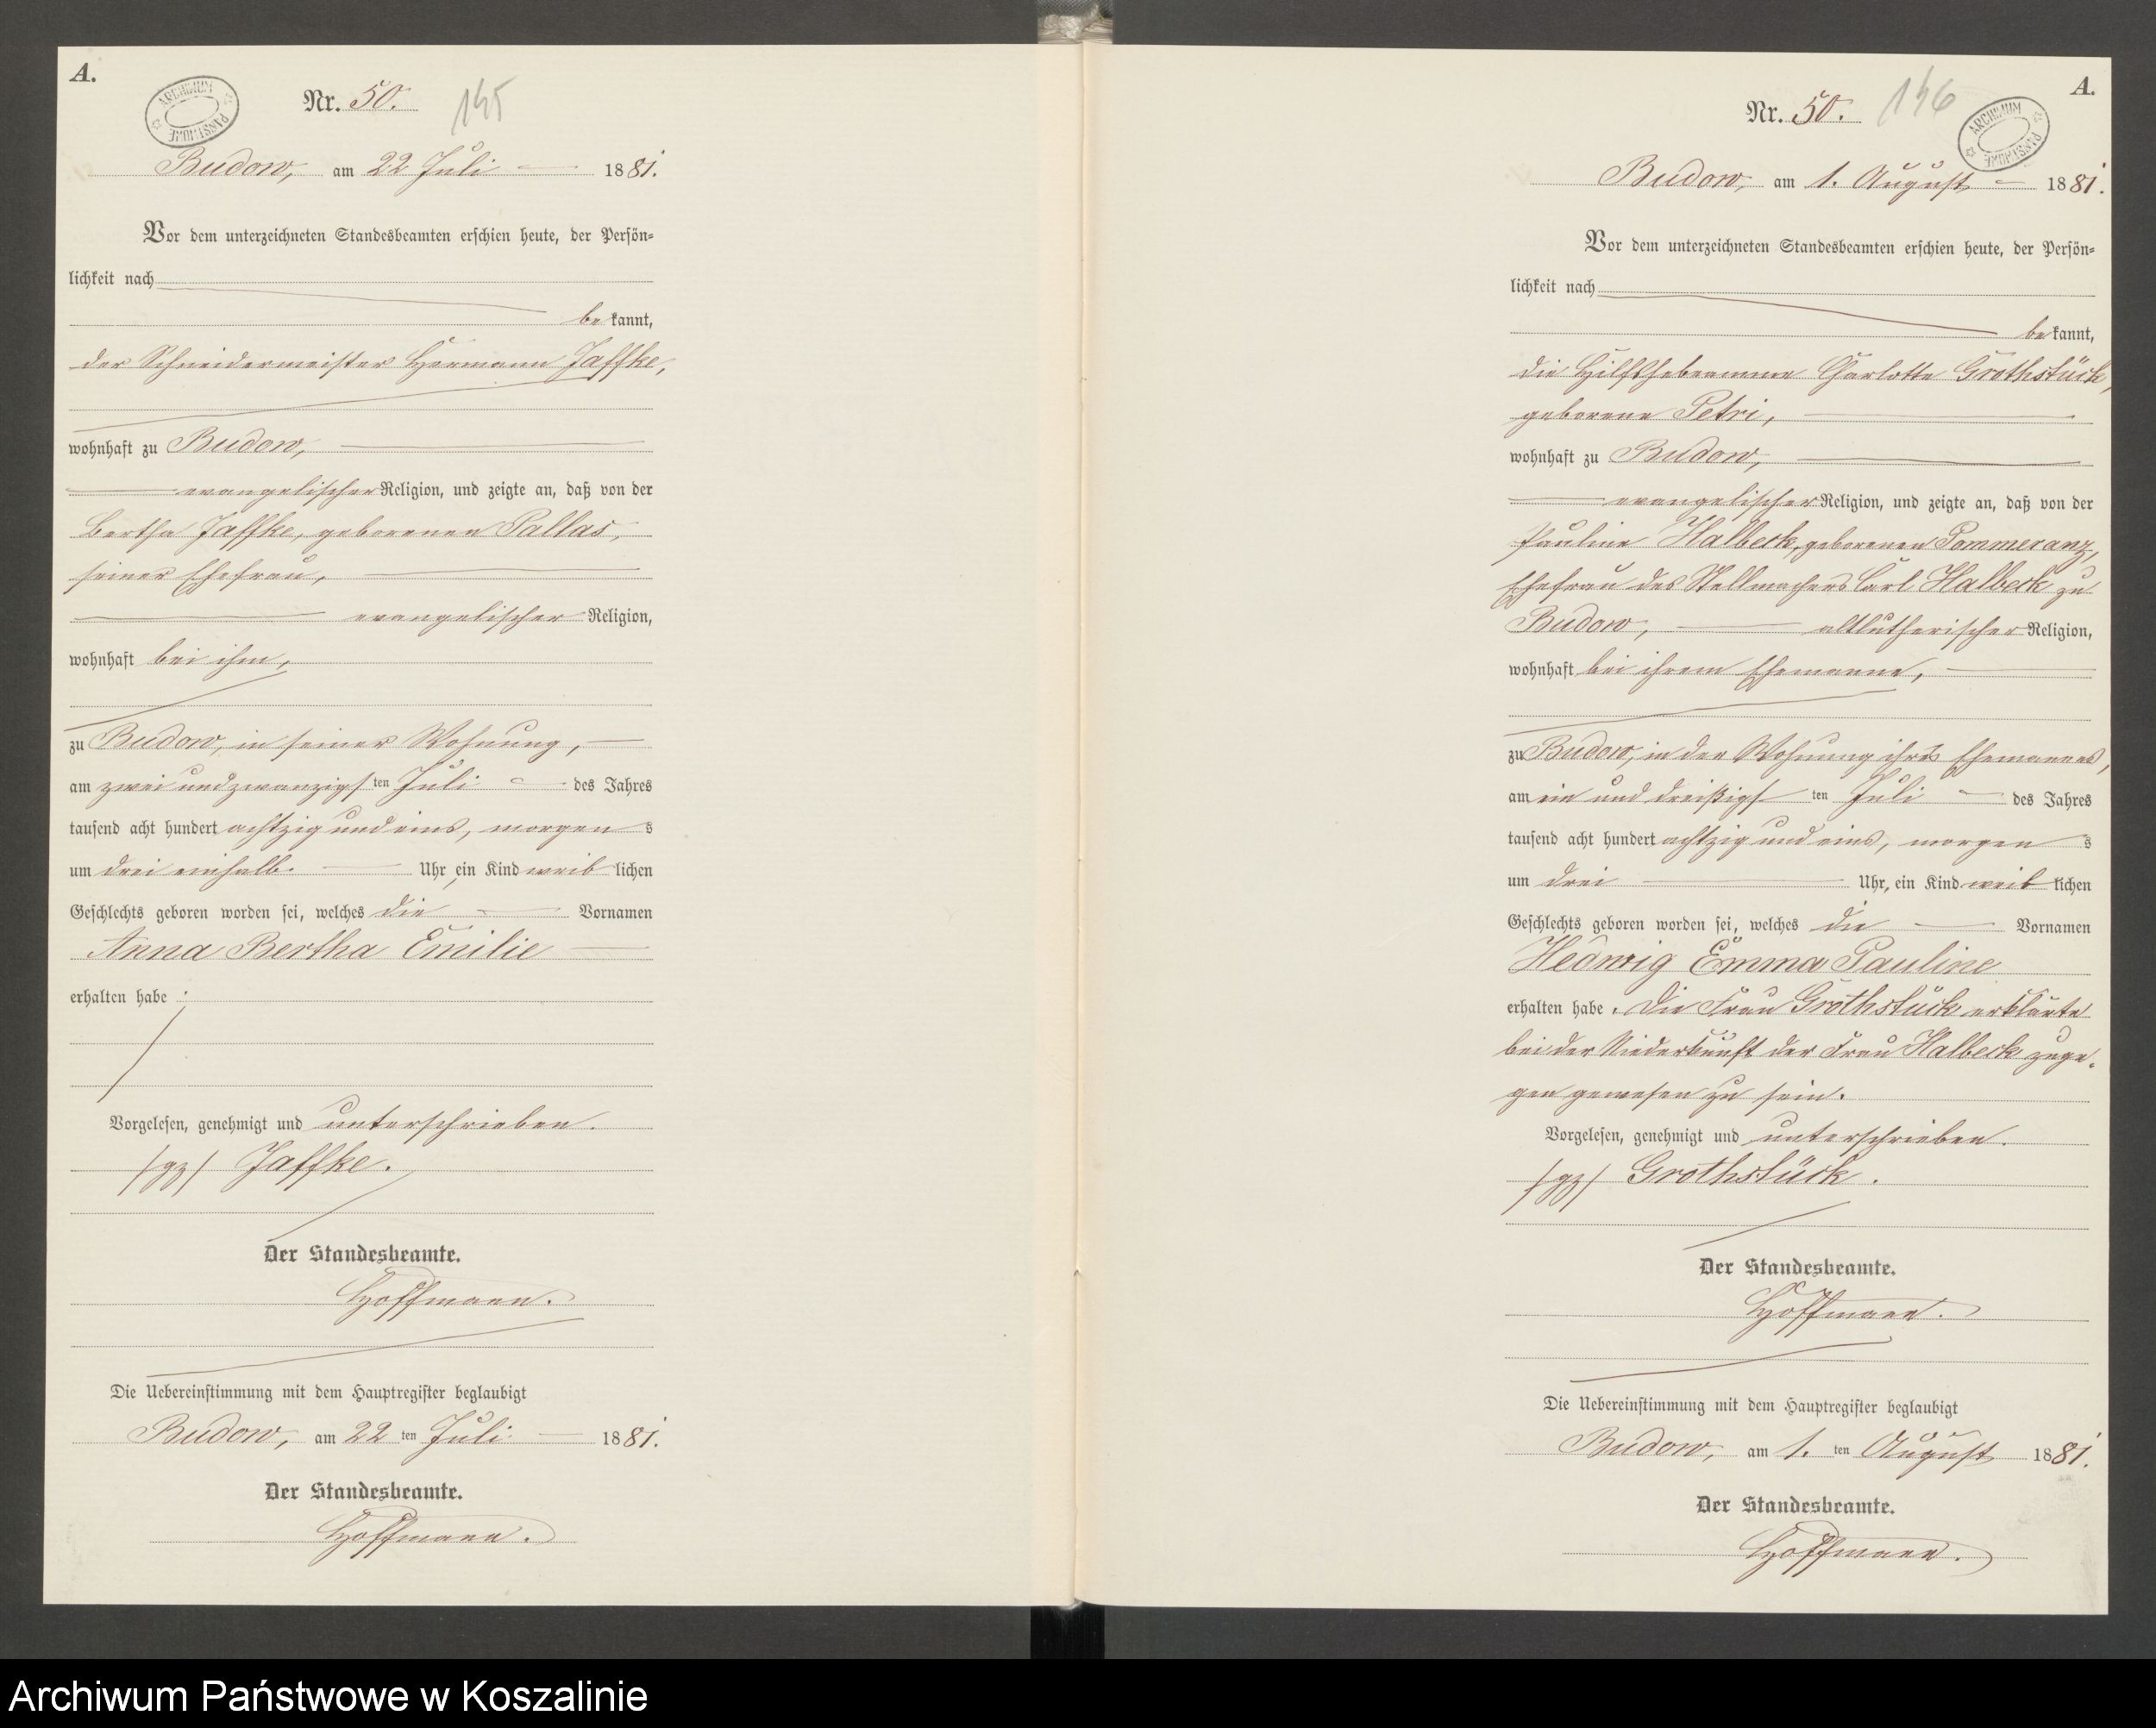 A.
ARCHIWUM PAŃSTWOWE
Nr. 50. 145
Budow, am 22 Juli 1881.
Vor dem unterzeichneten Standesbeamten erschien heute, der Persön-
lichkeit nach
bekannt,
der Schneidermeister Hermann Jaffke,
wohnhaft zu Budow,
evangelischer Religion, und zeigte an, daß von der
Bertha Jaffke, geborenen Pallas,
seiner Ehefrau,
evangelischer Religion,
wohnhaft bei ihm,
zu Budow, in seiner Wohnung,
am zwei und zwanzigsten Juli des Jahres
tausend acht hundert achtzig und eins, morgens
um drei einhalb Uhr, ein Kind weiblichen
Geschlechts geboren worden sei, welches die Vornamen
Anna Bertha Emilie
erhalten habe.
Vorgelesen, genehmigt und unterschrieben.
/gz/ Jaffke.
Der Standesbeamte.
Hoffmann.
Die Uebereinstimmung mit dem Hauptregister beglaubigt
Budow, am 22 ten Juli 1881.
Der Standesbeamte.
Hoffmann.
A.
Nr. 50. 146
ARCHIWUM PAŃSTWOWE
Budow, am 1. August 1881.
Vor dem unterzeichneten Standesbeamten erschien heute, der Persön-
lichkeit nach
bekannt,
die Hilfshebeamme Charlotte Grothstück,
geborene Petri,
wohnhaft zu Budow,
evangelischer Religion, und zeigte an, daß von der
Pauline Halbeck, geborenen Pommeranz,
Ehefrau des Stellmachers Carl Halbeck zu
Budow, altlutherischer Religion,
wohnhaft bei ihrem Ehemanne,
zu Budow, in der Wohnung ihres Ehemannes,
am ein und dreißigsten Juli des Jahres
tausend acht hundert achtzig und eins, morgens
um drei Uhr, ein Kind weiblichen
Geschlechts geboren worden sei, welches die Vornamen
Hedwig Emma Pauline
erhalten habe. Die Frau Grothstück erklärte
bei der Niederkunft der Frau Halbeck zuge-
gen gewesen zu sein.
Vorgelesen, genehmigt und unterschrieben.
/gz/ Grothstück.
Der Standesbeamte.
Hoffmann.
Die Uebereinstimmung mit dem Hauptregister beglaubigt
Budow, am 1. ten August 1881.
Der Standesbeamte.
Hoffmann.
Archiwum Państwowe w Koszalinie